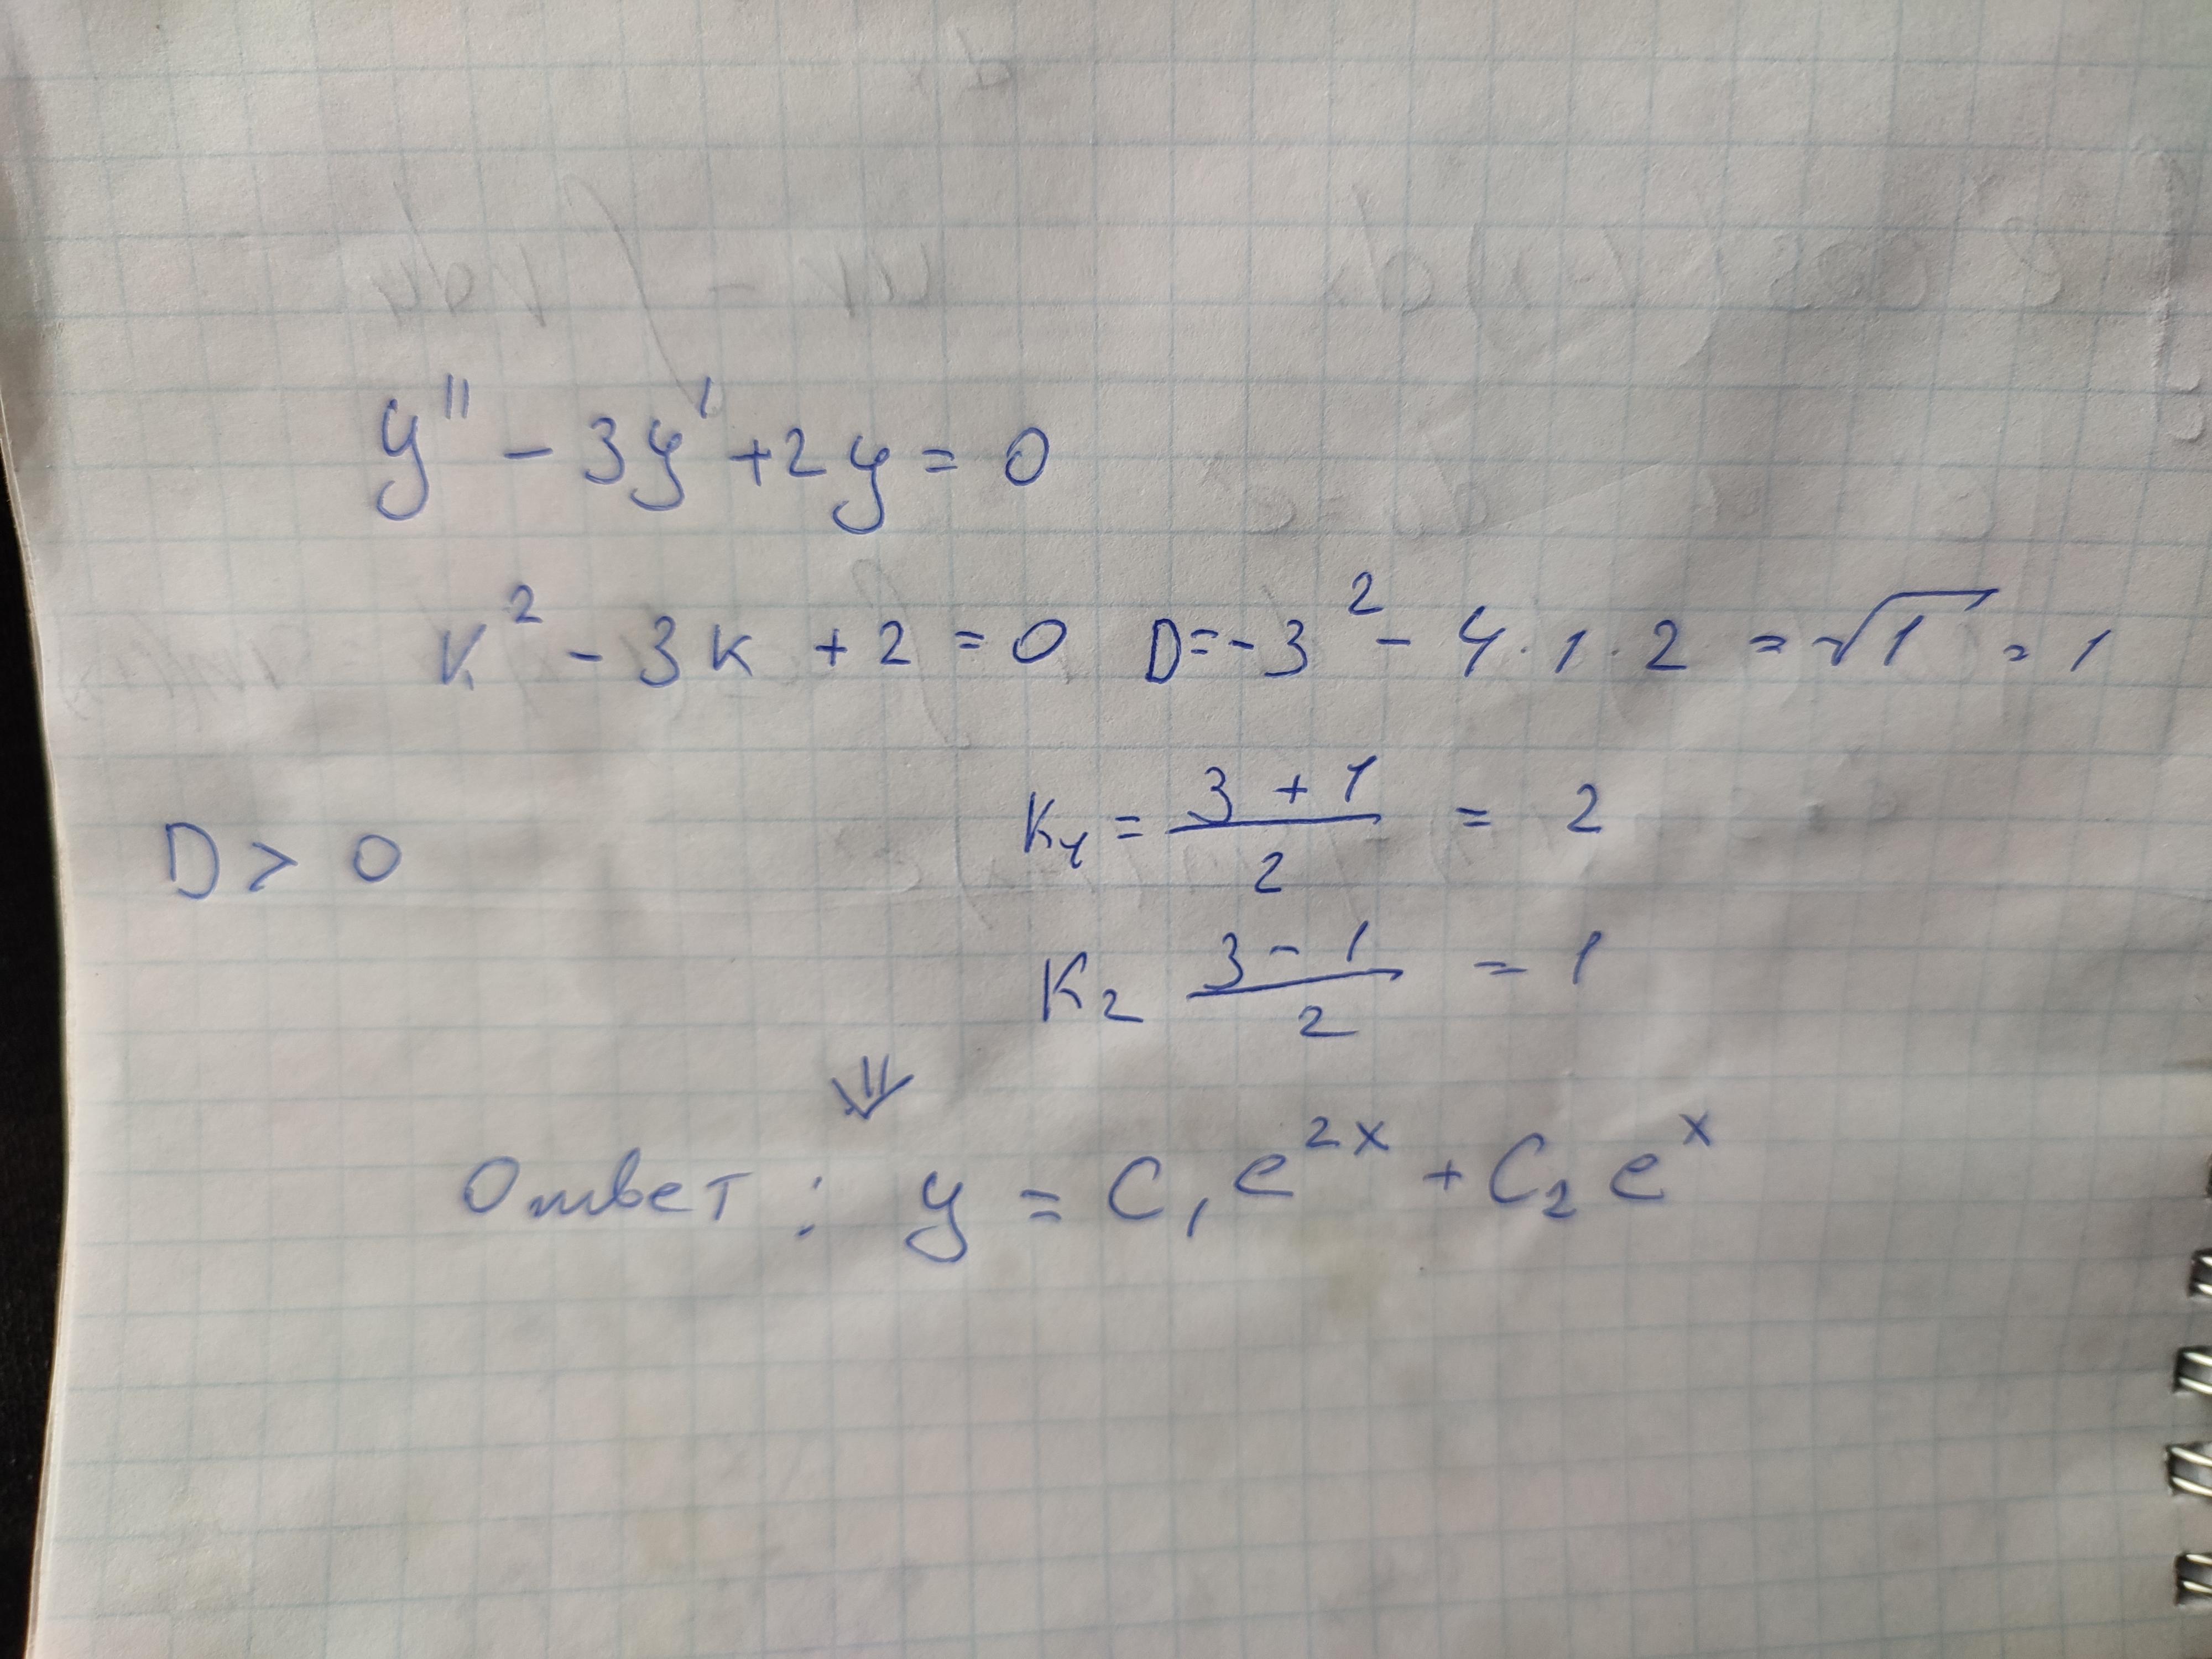 y'' - 3y' + 2y = 0
k² - 3k + 2 = 0 D = -3² - 4 · 1 · 2 = √1 = 1
D > 0
k₁ = (3 + 1)/2 = 2
k₂ (3 - 1)/2 = 1
⇓
Ответ : y = C₁e²ˣ + C₂eˣ